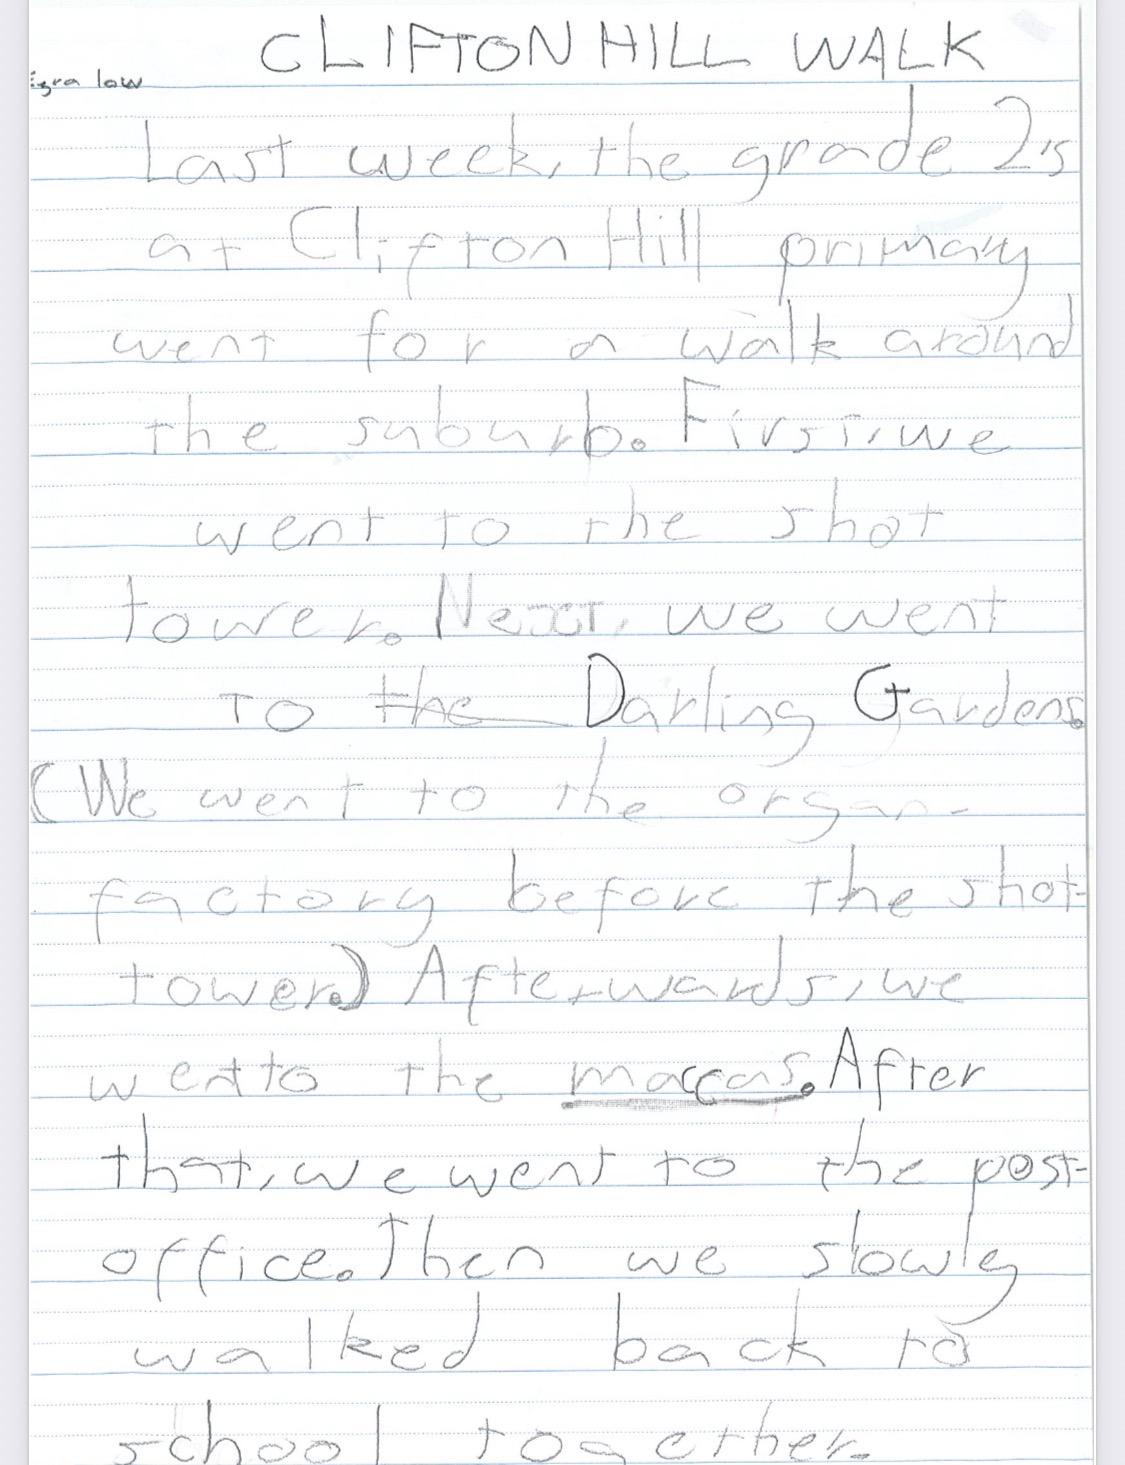 CLIFTON HILL WALK
Ezra low
Last week, the grade 2's
at Clifton Hill primary
went for a walk around
the suburb. First, we
went to the shot
tower. Next, we went
to the Darling Gardens.
(We went to the organ-
factory before the shot-
tower.) Afterwards, we
went to the maccas. After
that, we went to the post-
office. Then we slowly
walked back to
school together.